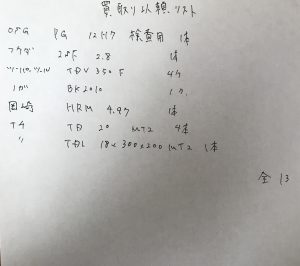 買取り依頼リスト
OPG PG 12H7 検査用 1本
フクダ 2.8F 2.8 1本
TDV 350F 4ケ
ノガ BK2010 1ケ
岡崎 HRM 4.97 1本
TD 20 MT2 4本
〃 TDL 18x300x200 MT2 1本
全 13